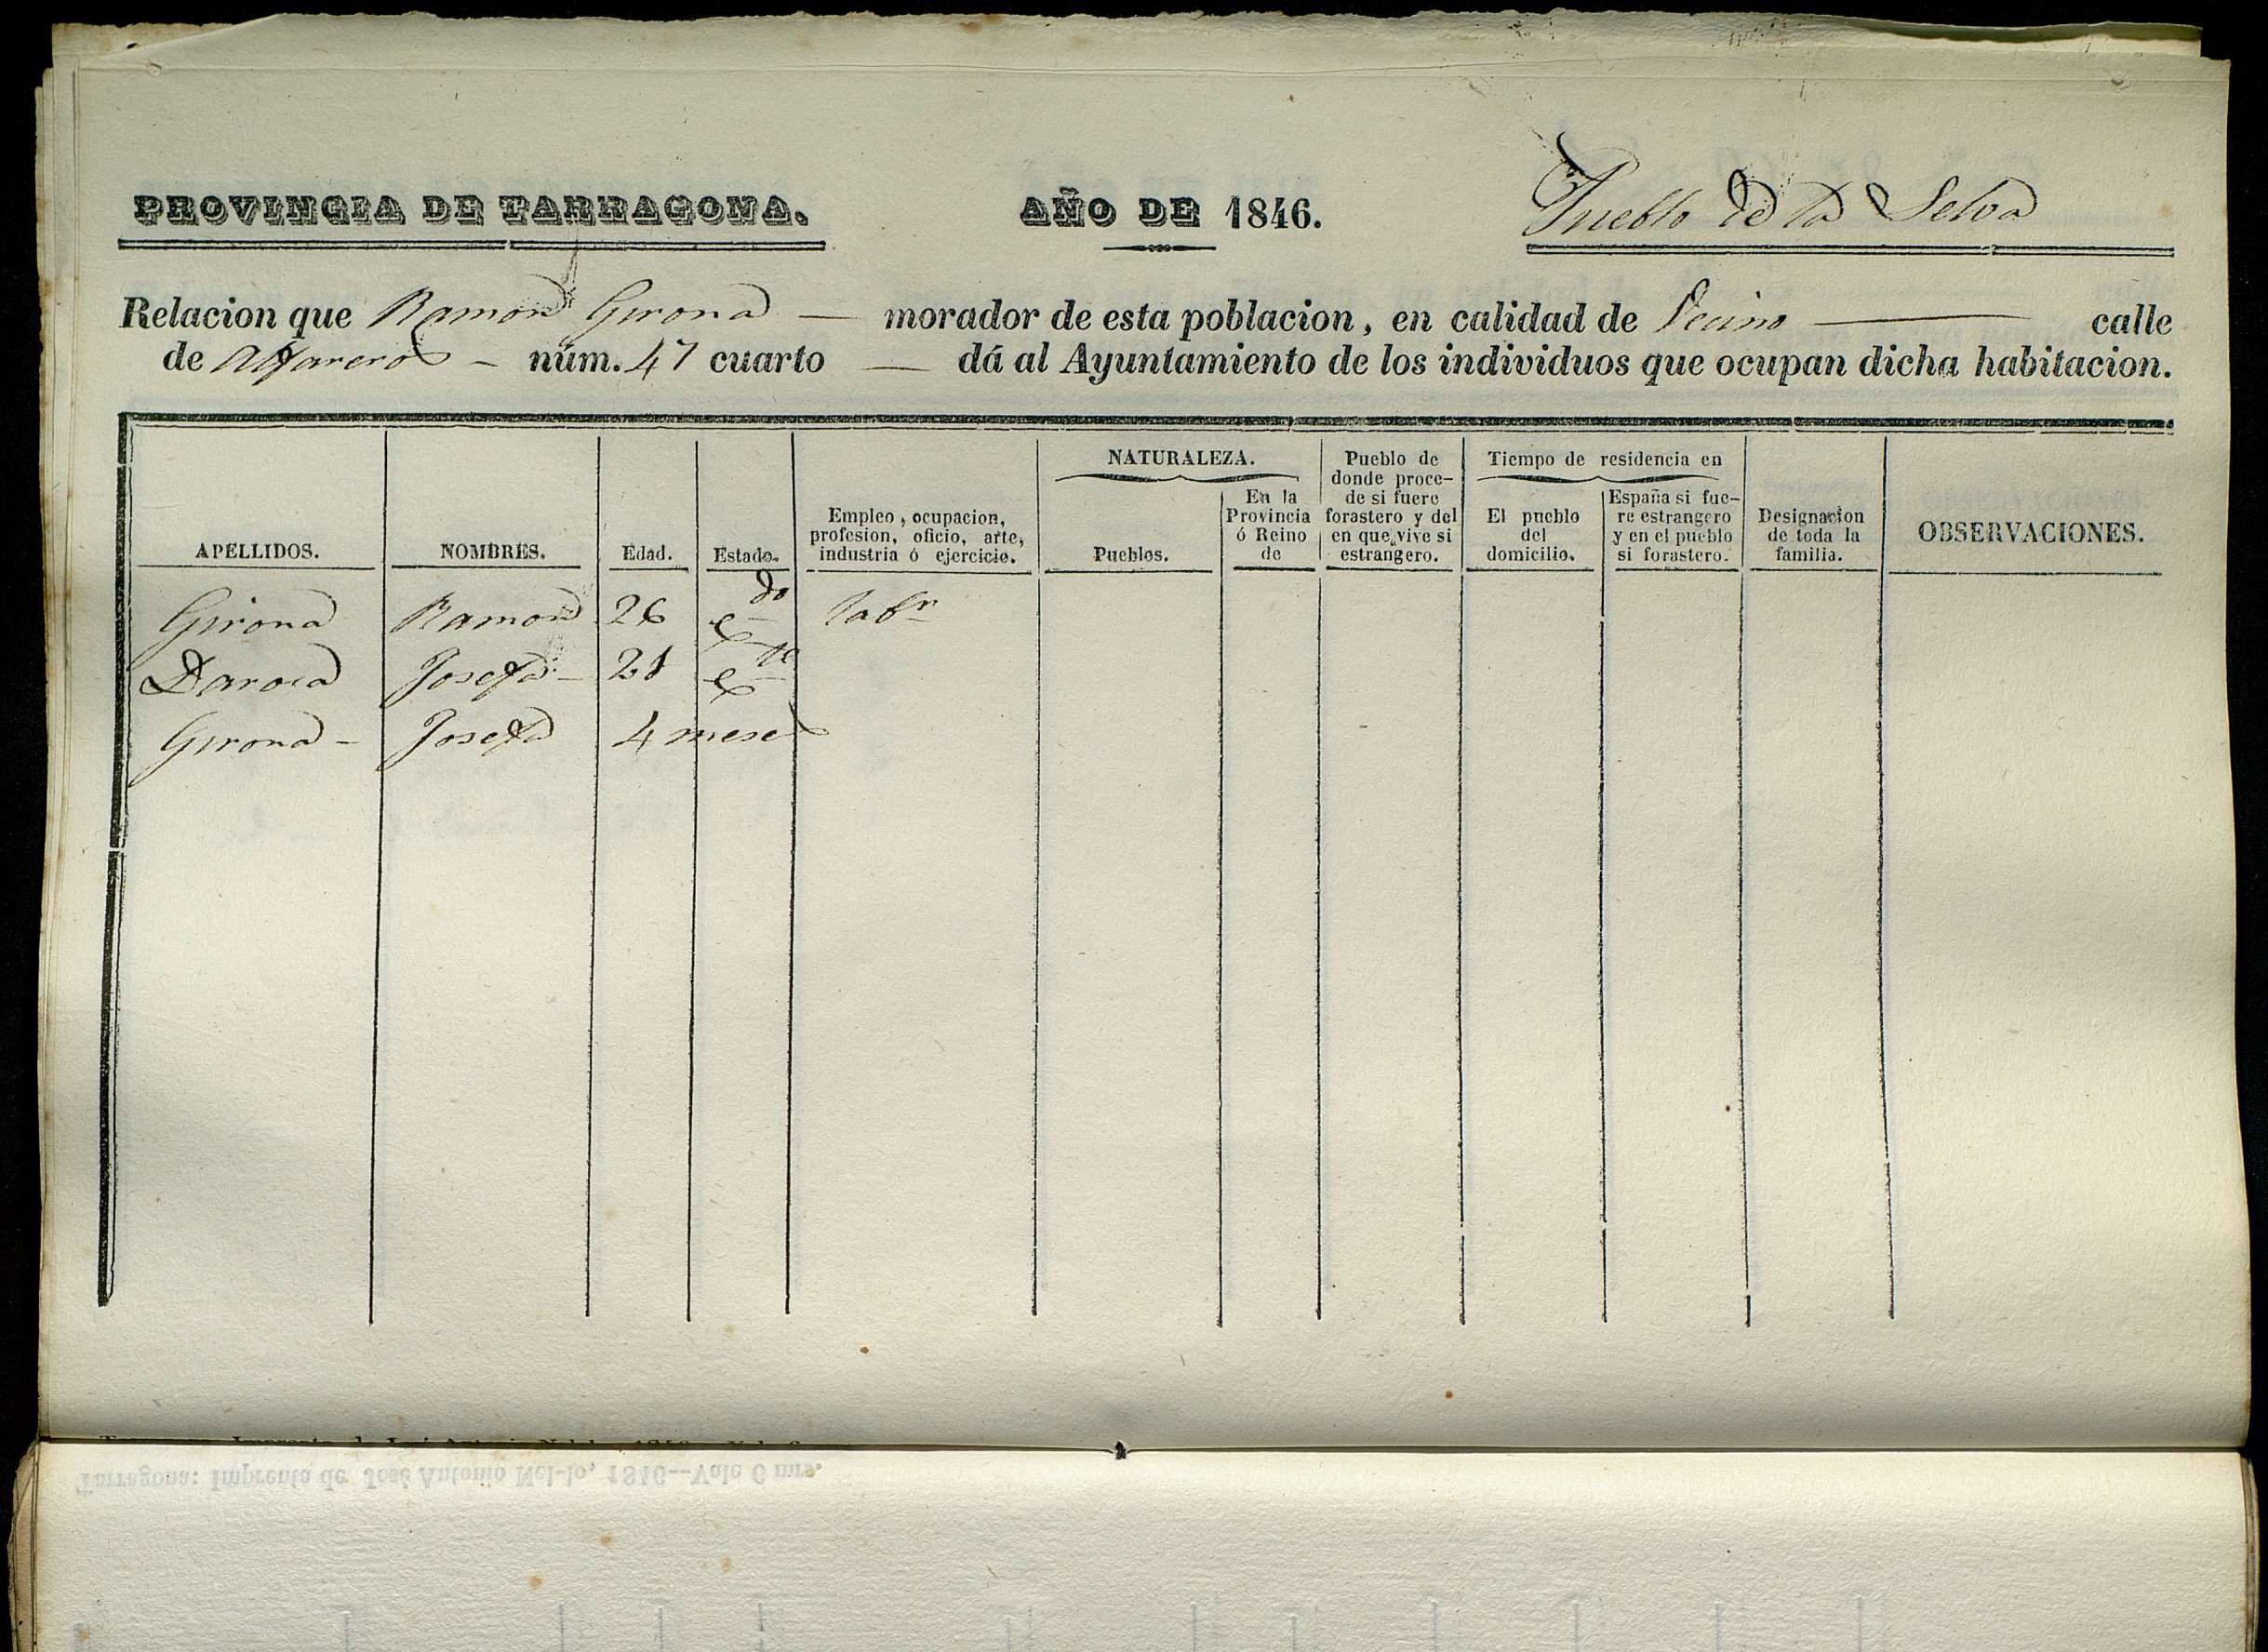 PROVINCIA DE TARRAGONA. AÑO DE 1846. Pueblo de la Selva
Relacion que Ramon Girona — morador de esta poblacion, en calidad de Vecino — calle
de Alfareros — núm. 47 cuarto — dá al Ayuntamiento de los individuos que ocupan dicha habitacion.
APELLIDOS.
NOMBRES.
Edad.
Estado.
Empleo, ocupacion,
profesion, oficio, arte,
industria ó ejercicio.
NATURALEZA.
Pueblos.
En la
Provincia
ó Reino
de
Pueblo de
donde proce-
de si fuere
forastero y del
en que vive si
estrangero.
Tiempo de residencia en
El pueblo
del
domicilio.
España si fue-
re estrangero
y en el pueblo
si forastero.
Designacion
de toda la
familia.
OBSERVACIONES.
Girona Ramon 26 cdo labr
Daroca Josefa 21 cda
Girona Josefa 4 meses
Tarragona: Imprenta de José Antonio Nel-lo, 1846--Vale 6 mrs.